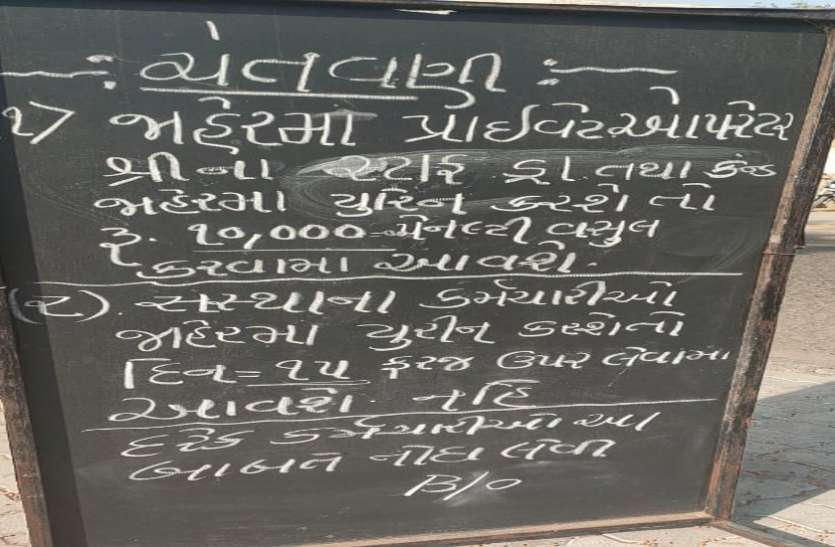 -: ચેતવણી :-
૧) જાહેરમાં પ્રાઇવેટ ઓપરેટર
શ્રીના સ્ટાફ ડ્રા. તથા કંડ
જાહેરમા યુરિન કરશે તો
રૂ. ૧૦,૦૦૦ પેનલ્ટી વસુલ
કરવામા આવશે.
(૨). સસ્થાના કર્મચારીઓ
જાહેરમાં યુરીન કરશે તો
દિન = ૧૫ ફરજ ઉપર લેવામા
આવશે. નહિ
દરેક કર્મચારીઓ આ
બાબત નોધ લેવી
B/O